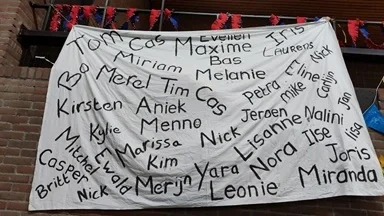 Tom Cas Evelien Iris
Maxime Laurens
Miriam Bas Nick
Bo Merel Tim Melanie Eline
Cas Petra Mike Catijn
Kirsten Aniek Jeroen Nalini Jan
Kylie Menno Nick Lisanne Ilse Lisa
Mitchel Marissa Nora Joris
Casper Ewald Kim Yara
Britt Nick Merijn Leonie Miranda